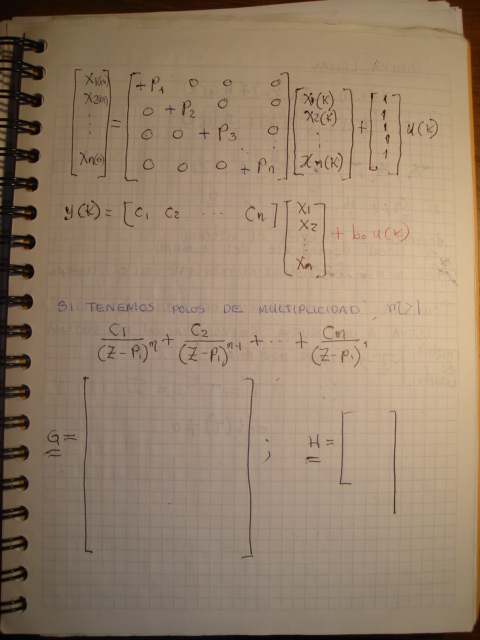 [X1(k) X2(k) ⋮ Xn(k)] = [+P1 0 0 0; 0 +P2 0 0; 0 0 +P3 0; 0 0 0 +Pn] [X1(k) X2(k) ⋮ Xn(k)] + [1 1 1 1 1] u(k)
y(k) = [C1 C2 ... Cn] [X1 X2 ⋮ Xn] + b0 u(k)
SI TENEMOS POLOS DE MULTIPLICIDAD m>1
C1/(Z-P1)^n + C2/(Z-P1)^n-1 + ... + Cn/(Z-P1)
G = [ ] ; H = [ ]